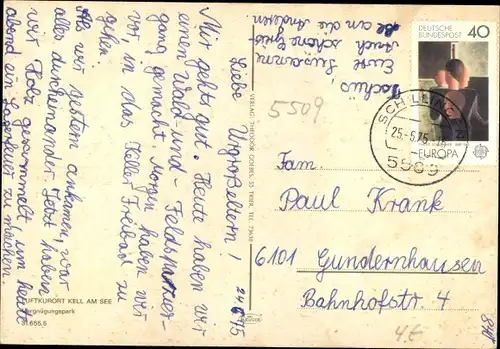 24.6.75
Liebe Urgroßeltern!
Mir geht's gut. Heute haben wir
einen Wald- und Feldspazier-
gang gemacht. Morgen haben wir
vor, in das Keller Freibad zu
gehen.
Als wir gestern ankamen, war
alles durcheinander. Jetzt haben
wir Holz gesammelt, um heute
abend ein Lagerfeuer zu machen.
Tschüs,
Eure Susanne
Auch schöne Grüße
an die Anderen
LUFTKURORT KELL AM SEE
Vergnügungspark
31.655,5
VERLAG THEODOR GOEBEL, 55 TRIER, TEL.
5509
DEUTSCHE
BUNDESPOST
40
EUROPA
SCHILLINGEN
25.-6.75
5509
Fam.
Paul Krank
6101 Gundernhausen
Bahnhofstr. 4
4,-€